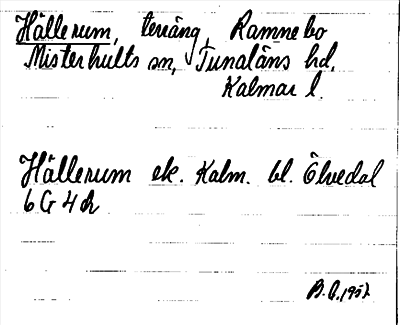 Hällerum, terräng, Ramnebo
Misterhults sn, Tunaläns hd,
Kalmar l.
Hällerum ek. Kalm. bl. Ölvedal
6 G 4 h
B.G. 1957